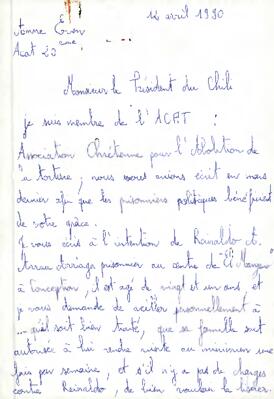 12 avril 1990
Acat 23ème
Monsieur le Président du Chili
je suis membre de l'ACAT :
Association Chrétienne pour l'Abolition de
la torture ; nous vous avions écrit en mars
dernier afin que les prisonniers politiques bénéficient
de votre grâce.
Je vous écris à l'intention de Reinaldo A.
Arriaga prisonnier au centre de "El Manzano"
à Conception, il est agé de vingt et un ans, et
je vous demande de veiller personnellement à
qu'il soit bien traité, que sa famille soit
autorisée à lui rendre visite au minimum une
fois par semaine, et s'il n'y a pas de charges
contre Reinaldo, de bien vouloir le libérer.